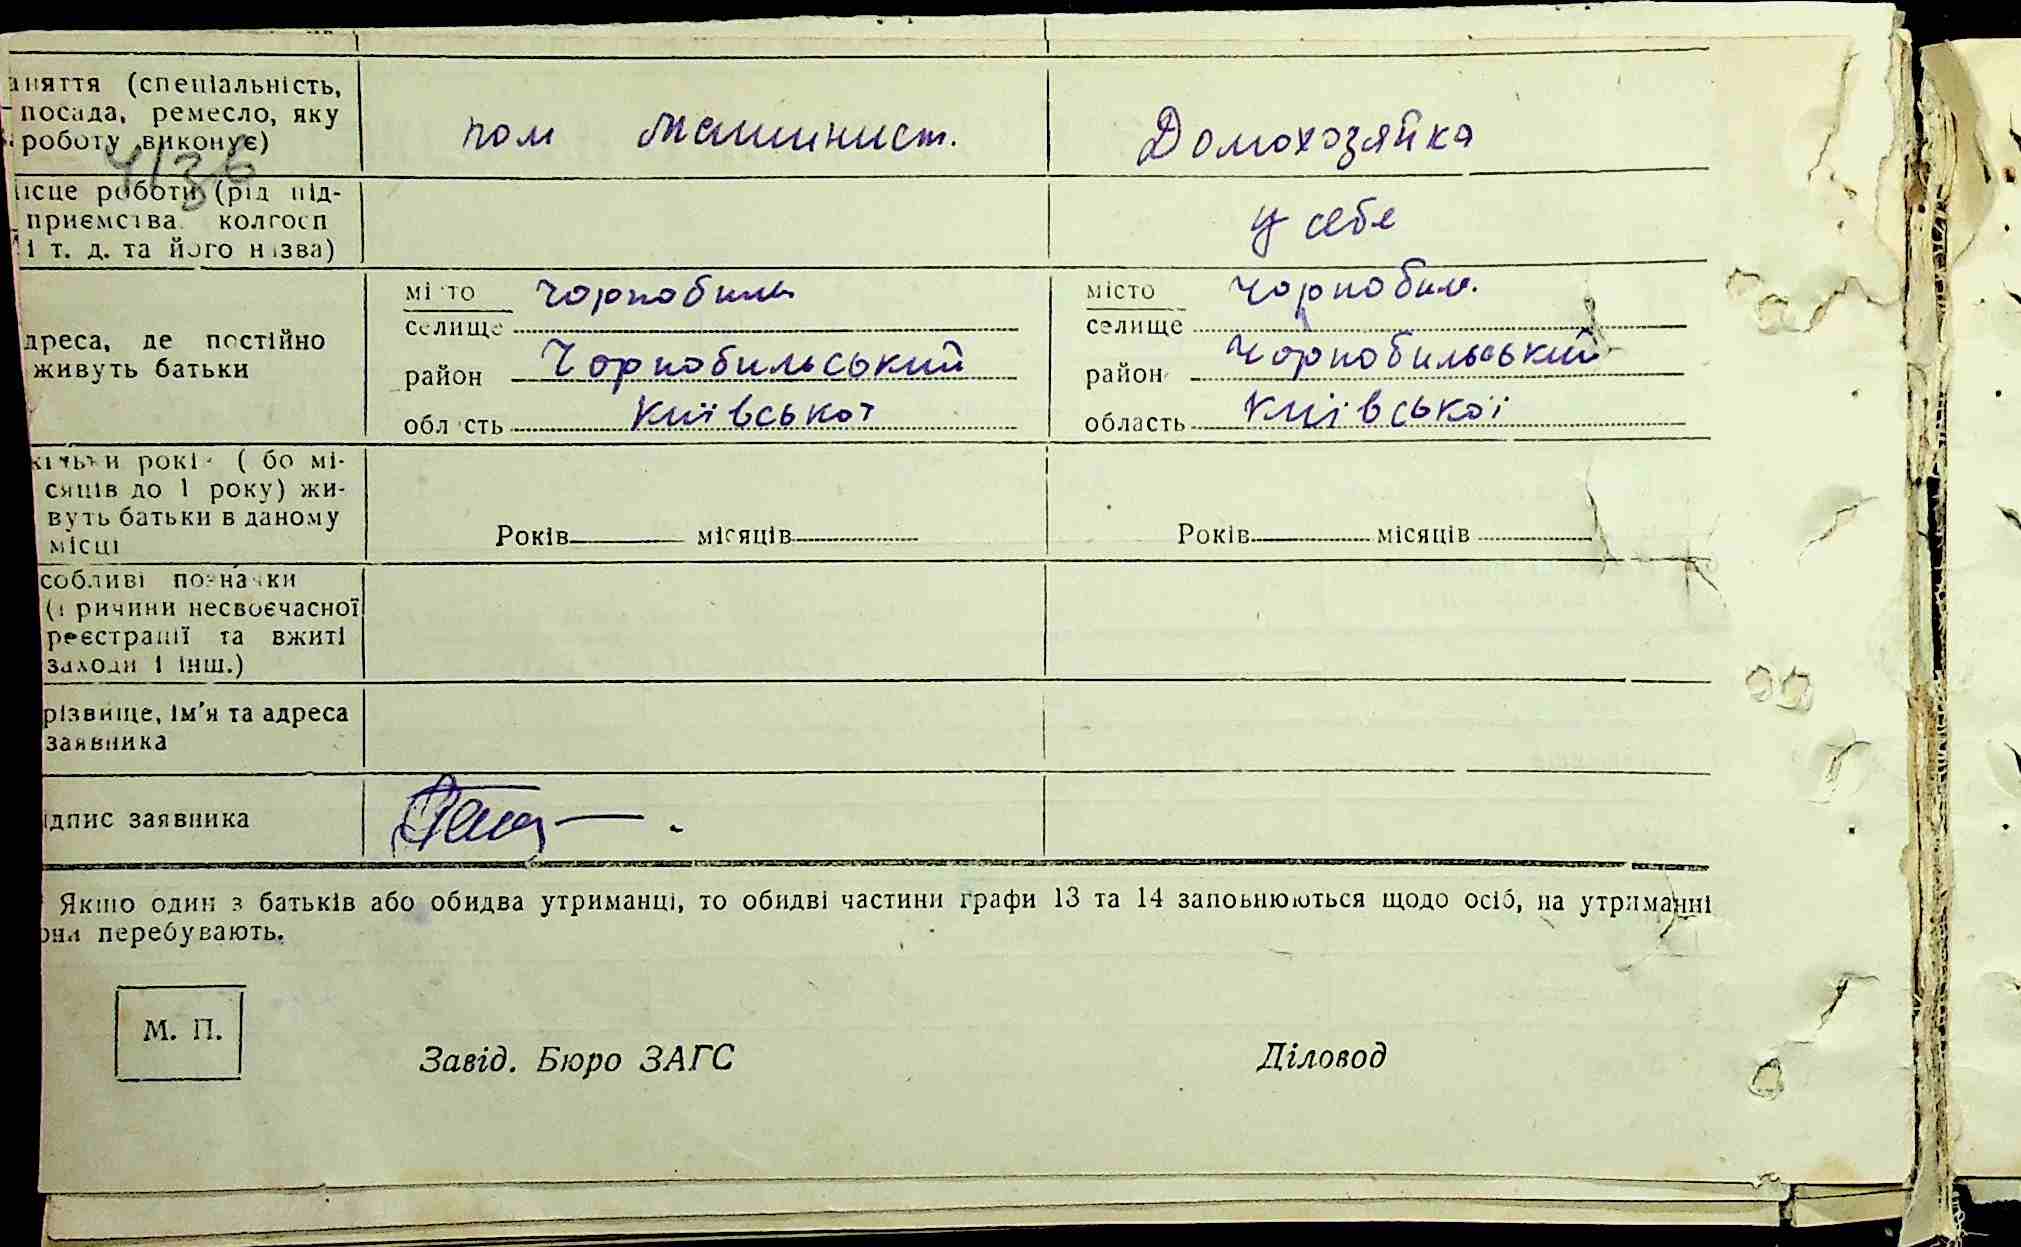 аняття (спеціальність,
посада, ремесло, яку
роботу виконує)
пом машинист.
Домохозяйка
4136
ісце роботи (рід під-
приємства. колгосп
і т. д. та його назва)
у себе
дреса, де постійно
живуть батьки
місто Чорнобиль
селище
район Чорнобильський
область Київської
місто Чорнобил.
селище
район Чорнобильський
область Київської
кільки років ( бо мі-
сяців до 1 року) жи-
вуть батьки в даному
місці
Років місяців
Років місяців
собливі позначки
(причини несвоєчасної
реєстрації та вжиті
заходи і інш.)
різвище, ім'я та адреса
заявника
ідпис заявника
Якщо один з батьків або обидва утриманці, то обидві частини графи 13 та 14 заповнюються щодо осіб, на утриманні
они перебувають.
М. П.
Завід. Бюро ЗАГС
Діловод